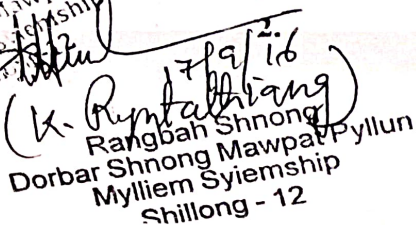 (K. Ryntathiang)
Rangbah Shnong
Dorbar Shnong Mawpat Pyllun
Mylliem Syiemship
Shillong - 12